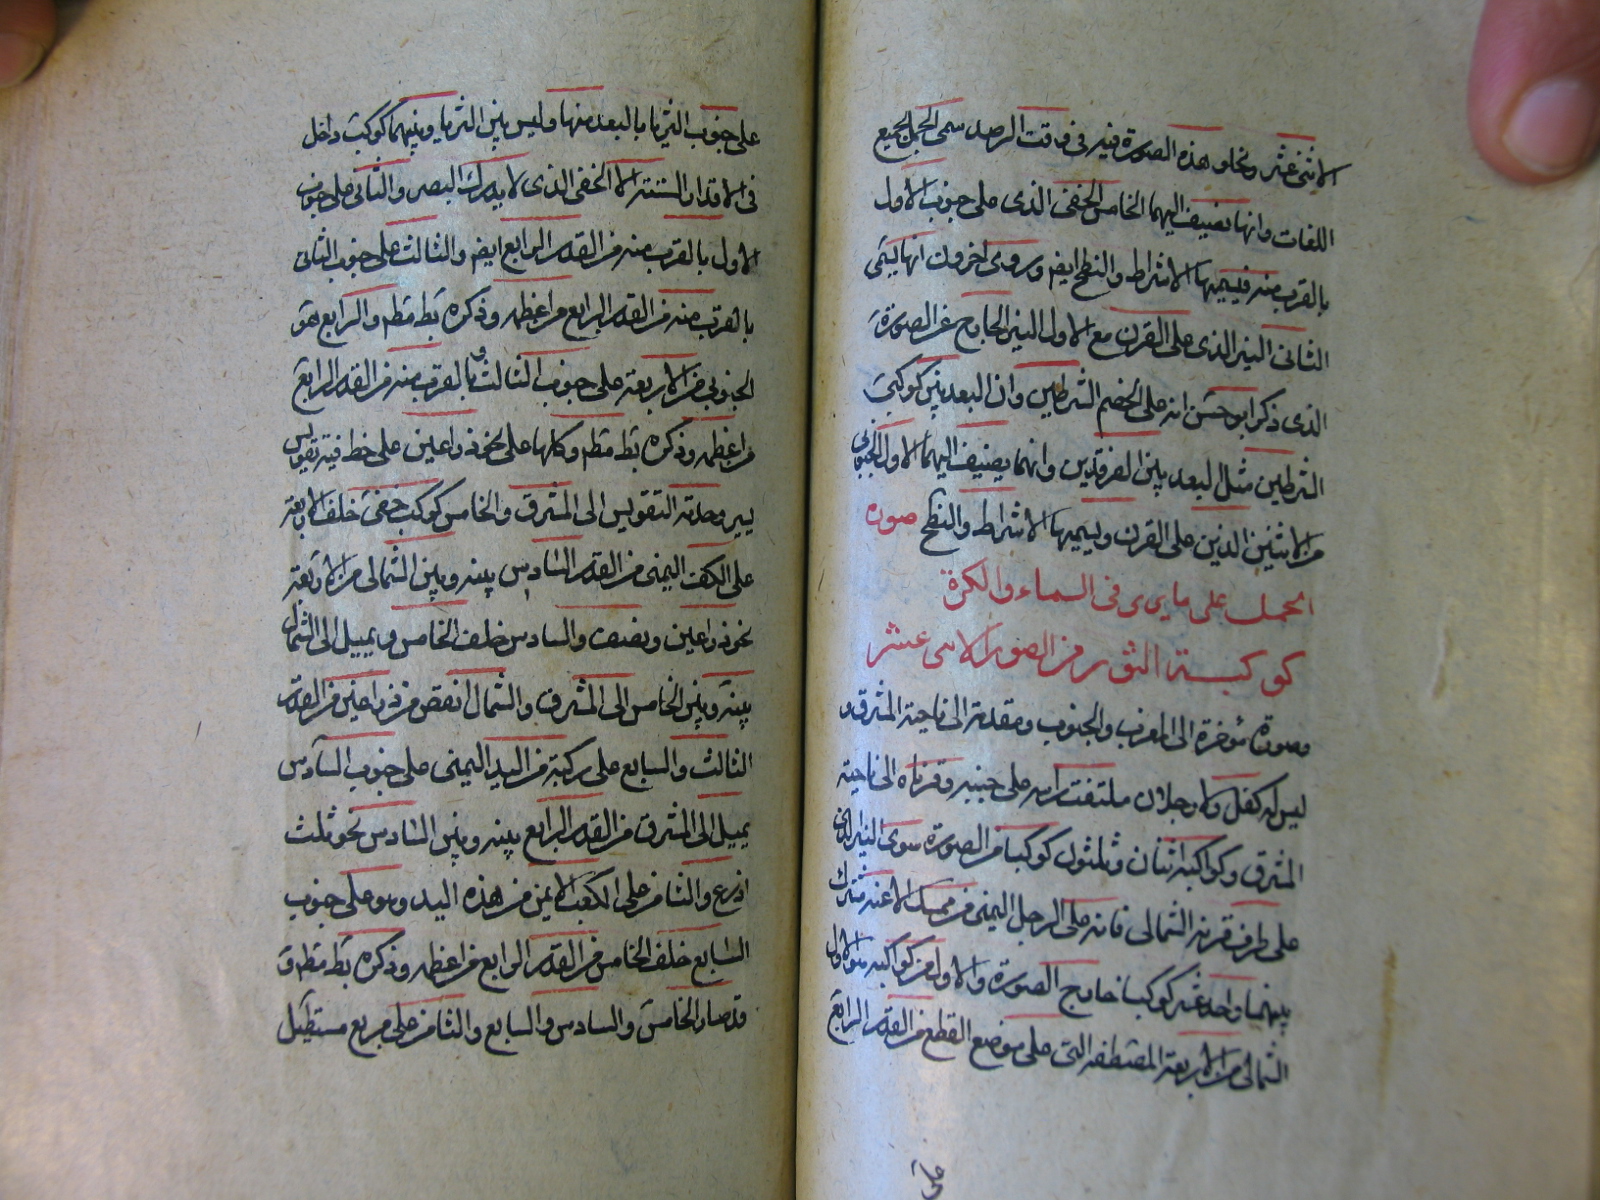 الاثنى عشر وتخلو هذه الصورة فيه فى فاقت الرصد سمى الحمل لجميع
اللغات وانها يضيف اليهما الخامس الخفى الذى على جنوب الاول
بالقرب منه فيسميها الاشراط والنطح ايضا وروى اخرون انها ليسمى
الثانى النير الذى على القرن مع الاول النير الخارج عن الصورة
الذى ذكر ابرخس انه على الخطم الشرطين وان البعد بين كوكبى
الشرطين مثل البعد بين الفرقدين وانهما يضيف اليهما الاول الجنوبى
من الاثنين الذين على القرن ويسميها الاشراط والنطح صورة
الحمل على ما يرى فى السماء والكرة
كوكبة الثور من الصور الاثنى عشر
وصورة مؤخرة الى المغرب والجنوب ومقدمه الى ناحية المشرق و
ليس له كفل ولا رجلان ملتفت راسه على جنبه وقرناه الى ناحية
المشرق وكواكبه اثنان وثلثون كوكبا من الصورة سوى النير الذى
على طرف قرنه الشمالى فانه على الرجل اليمنى من ممسك الاعنه مشترك
بينهما واحد عشر كوكبا خارج الصورة والاول من كواكبه هو الاول
الشمالى من الاربعة المصطفه التى على موضع القطع من القدر الرابع
على
على جنوب الثريا بالبعد منها وليس بين الثريا وبينهما كوكب داخل
فى الاقدار الستة الا الخفى الذى لا يدرك البصر والثانى على جنوب
الاول بالقرب منه من القدر الرابع ايضا والثالث على جنوب الثانى
بالقرب منه من القدر الرابع من اعظمه وذكره بطمه مطلقا والرابع هو
الجنوبى من الاربعة على جنوب الثالث بالقرب منه من القدر الرابع
من اعظمه وذكره وكلها على نحو ذراعين على خط فيه تقويس
يسير وحدبة التقويس الى المشرق والخامس كوكب خفى خلف الاربعة
على الكتف اليمنى من القدر السادس بينه وبين الشمالى من الاربعة
نحو ذراعين ونصف والسادس خلف الخامس ويميل الى الشمال
بينه وبين الخامس الى المشرق والشمال انقص من ذراعين من القدر
الثالث والسابع على ركبة من اليد اليمنى على جنوب السادس
يميل الى المشرق من القدر الرابع بينه وبين السادس نحو ثلث
اذرع والثامن على الكعب الايمن من هذه اليد وهو على جنوب
السابع خلف الخامس من القدر الرابع من اعظمه وذكره
قد صار الخامس والسادس والسابع والثامن على مربع مستطيل